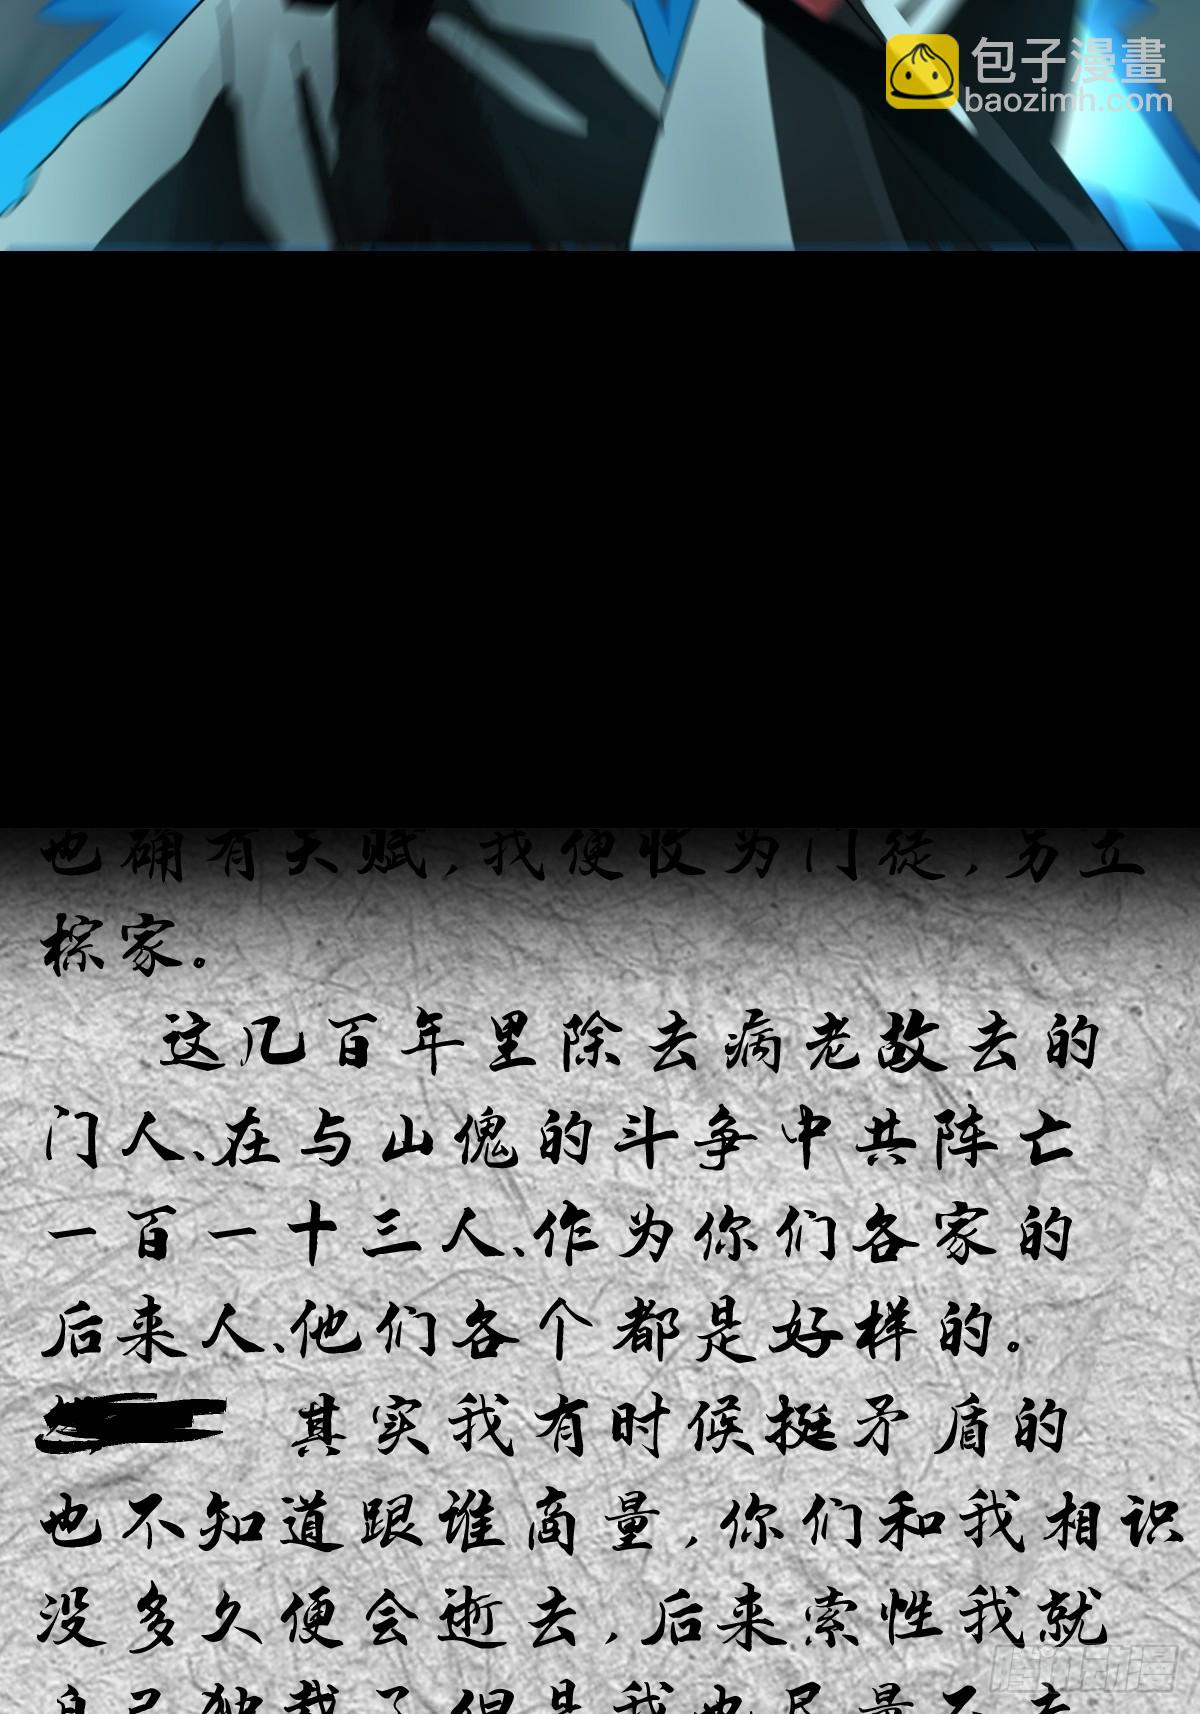 包子漫畫
baozimh.com
也确有天赋,我便收为门徒,另立
棕家。
这几百年里除去病老故去的
门人、在与山傀的斗争中共阵亡
一百一十三人、作为你们各家的
后来人、他们各个都是好样的。
其实我有时候挺矛盾的
也不知道跟谁商量,你们和我相识
没多久便会逝去,后来索性我就
自己独裁了但是我也尽量不去